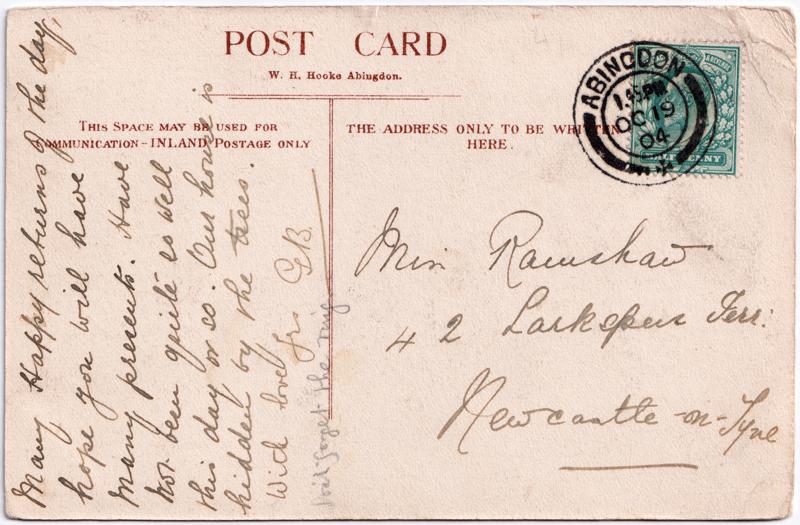 POST CARD
W. H. Hooke Abingdon.
THIS SPACE MAY BE USED FOR
COMMUNICATION - INLAND POSTAGE ONLY
THE ADDRESS ONLY TO BE WRITTEN
HERE.
ABINGDON
1.45PM
OC 19
04
HALFPENNY
Many Happy returns of the day,
hope you will have
many presents. Have
not been quite so well
this day or so. Our house is
hidden by the trees.
With love frs GB.
don't forget the ring
Miss Ramshaw
42 Larkspur Terr:
Newcastle-on-Tyne